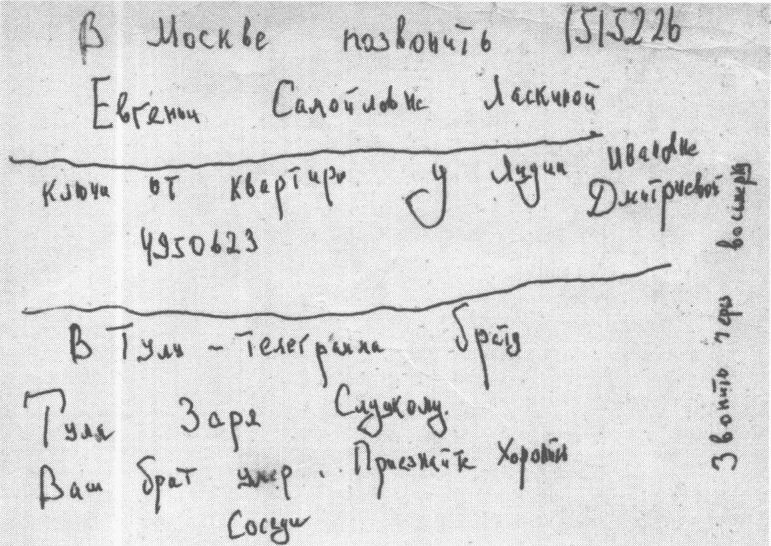 В Москве позвонить 1515226
Евгении Самойловне Ласкиной
Ключи от квартиры у Лидии Ивановне
Дмитриевой
4950623
В Тулу - телеграмма брату
Тула Заря Слуцкому.
Ваш брат умер. Приезжайте хоронить
Соседи
Звонить через восьмерку